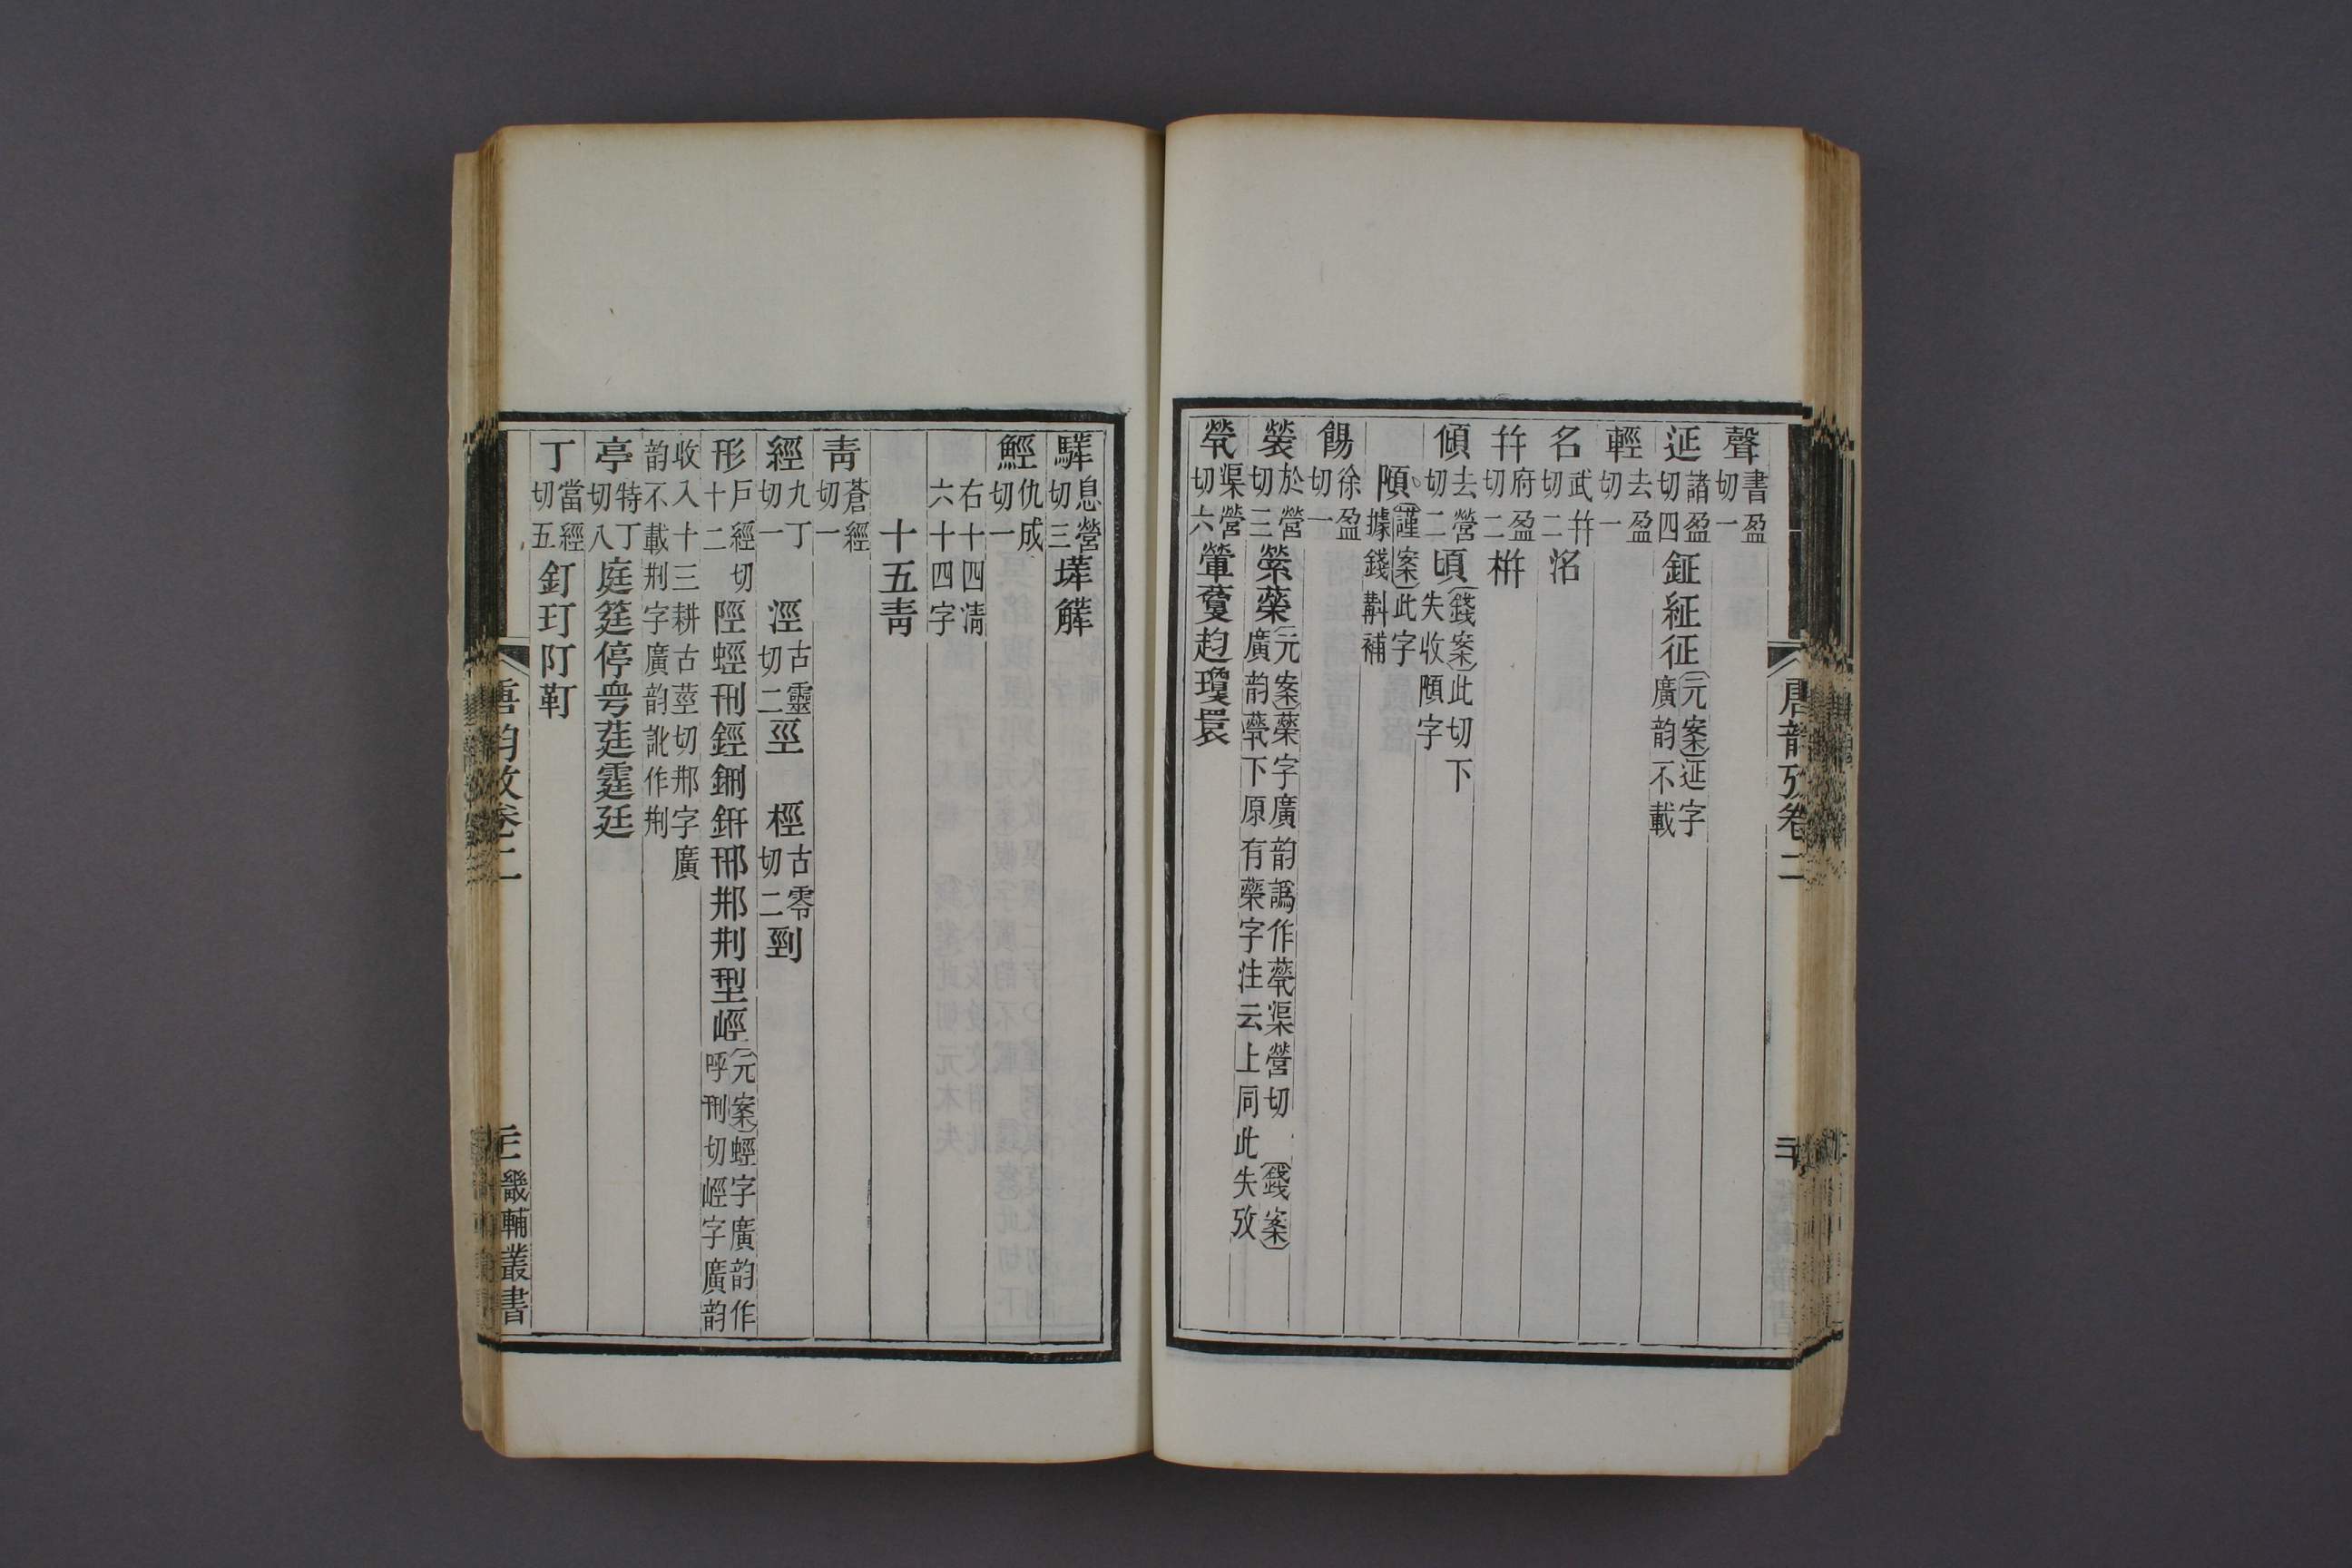 聲書盈切一
延諸盈切四鉦絍征元案延字廣韵不載
輕去盈切一
名武幷切二洺
幷府盈切二栟
傾去營切二頃錢案此切下失收頎字
謹案此字據錢斠補
餳徐盈切一
褮於營切三縈蘂元案蘂字廣韵譌作藑渠營切錢案廣韵藑下原有蘂字注云上同此失攷
煢渠營切六㷀藑赹瓊瞏
唐韵攷卷二
騂息營切三垶觲
鯹仇成切一
右十四淸六十四字
十五靑
靑蒼經切一
經九丁切一涇古靈切二巠桱古零切二剄
形戶經切十二陘蛵刑鋞鉶鈃邢邢荆型峌元案蛵字廣韵作呼刑切峌字廣韵
收入十三耕古莖切邢字廣韵不載荆字廣韵訛作荆
亭特丁切八庭筳停甹莛霆廷
丁當經切五釘玎阠靪
唐韵攷卷二
畿輔叢書